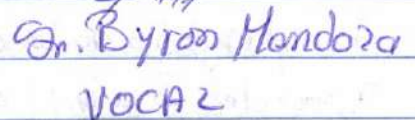 Sr. Byron Mendoza
VOCAL